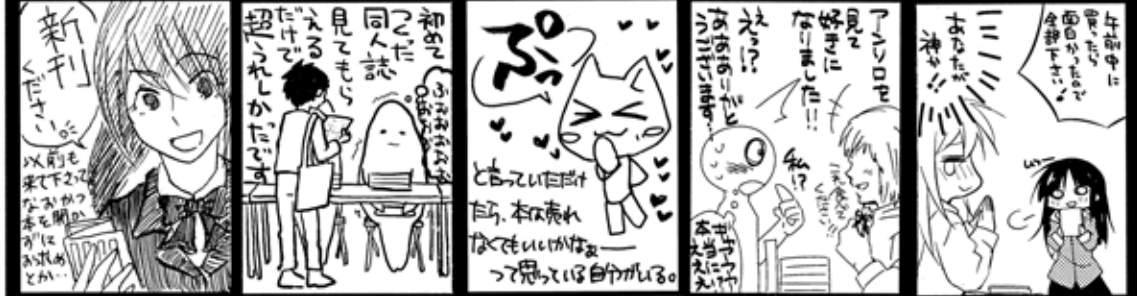 新刊
ください。
以前も
来て下さって
なおかつ
本を開か
ずに
おられめ
とか‥
初めて
つくった
同人誌
見てもら
えるだけで
超うれしかったです
ぷっ
と言っていただけ
たら、本は売れ
なくてもいいかなぁ――
って思っている自分がいる。
アンソロを
見て
好きに
なりました!!
ええっ!?
あああありがと
うございます…
私!?
本当に
午前中に
買ったら
面白かったので
全部下さい!
あなたが
神か!!